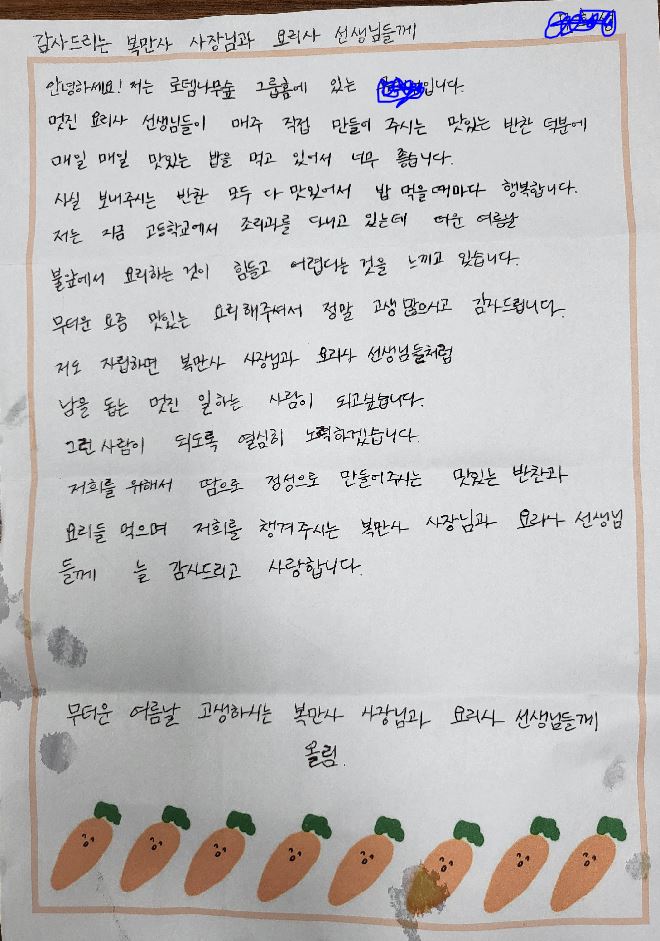 감사드리는 복만사 사장님과 요리사 선생님들께
안녕하세요! 저는 로뎀나무숲 그룹홈에 있는 입니다.
멋진 요리사 선생님들이 매주 직접 만들어 주시는 맛있는 반찬 덕분에
매일 매일 맛있는 밥을 먹고 있어서 너무 좋습니다.
사실 보내주시는 반찬 모두 다 맛있어서 밥 먹을때마다 행복합니다.
저는 지금 고등학교에서 조리과를 다니고 있는데 더운 여름날
불앞에서 요리하는 것이 힘들고 어렵다는 것을 느끼고 있습니다.
무더운 요즘 맛있는 요리해주셔서 정말 고생 많으시고 감사드립니다.
저도 자립하면 복만사 사장님과 요리사 선생님들처럼
남을 돕는 멋진 일하는 사람이 되고싶습니다.
그런 사람이 되도록 열심히 노력하겠습니다.
저희를 위해서 땀으로 정성으로 만들어주시는 맛있는 반찬과
요리들 먹으며 저희를 챙겨주시는 복만사 사장님과 요리사 선생님
들께 늘 감사드리고 사랑합니다.
무더운 여름날 고생하시는 복만사 사장님과 요리사 선생님들께
올림.